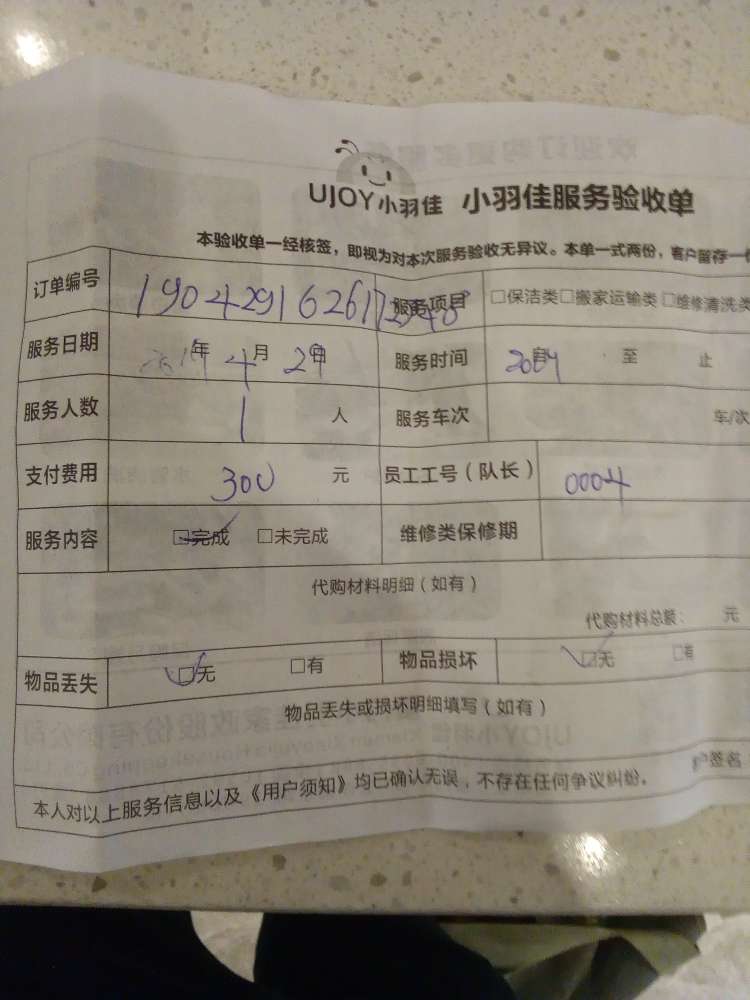 UJOY小羽佳 小羽佳服务验收单
本验收单一经核签，即视为对本次服务验收无异议。本单一式两份，客户留存一份
订单编号 服务项目 □保洁类□搬家运输类□维修清洗类
服务日期 年 4月 29日 服务时间 至 止
服务人数 1 人 服务车次 车/次
支付费用 300 元 员工工号（队长） 0004
服务内容 □完成 □未完成 维修类保修期
代购材料明细（如有）
代购材料总额： 元
物品丢失 □无 □有 物品损坏 □无 □有
物品丢失或损坏明细填写（如有）
本人对以上服务信息以及《用户须知》均已确认无误，不存在任何争议纠纷。 户签名